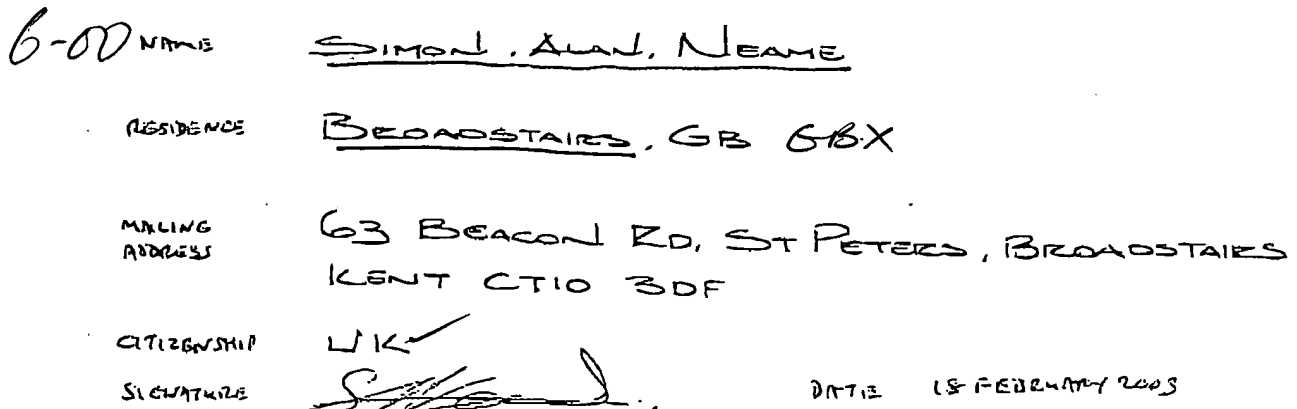 6-00 NAME SIMON. ALAN. NEAME
RESIDENCE BROADSTAIRS. GB GBX
MAILING ADDRESS 63 BEACON RD, ST PETERS, BROADSTAIRS
KENT CT10 3DF
CITIZENSHIP UK
SIGNATURE DATE FEBRUARY 2003